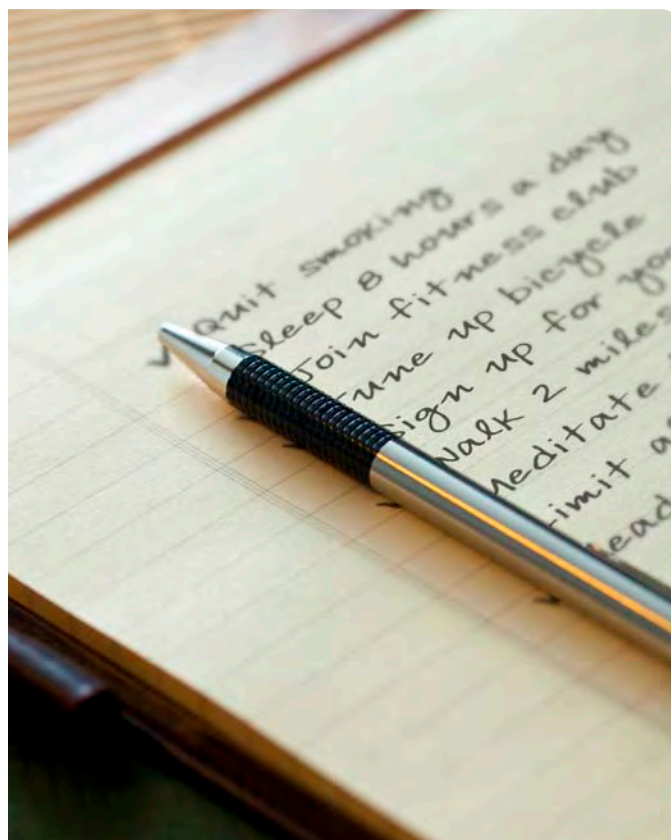 Quit smoking
Sleep 8 hours a day
Join fitness club
Tune up bicycle
Sign up for
Walk 2 miles
Meditate
Limit